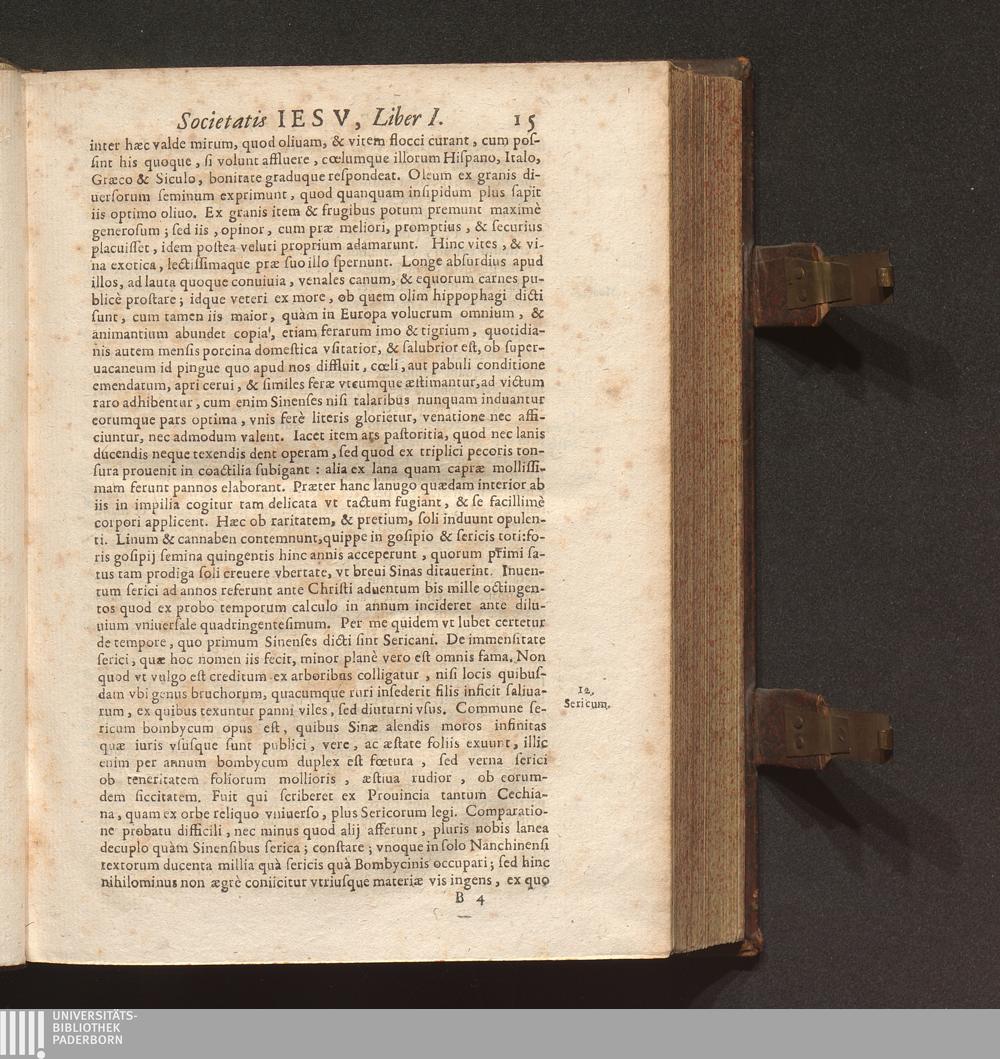 Societatis IESV, Liber I. 15
inter hæc valde mirum, quod oliuam, & vitem flocci curant, cum pos-
ſint his quoque, ſi volunt affluere, cœlumque illorum Hiſpano, Italo,
Græco & Siculo, bonitate graduque reſpondeat. Oleum ex granis di-
uerſorum ſeminum exprimunt, quod quanquam inſipidum plus ſapit
iis optimo oliuo. Ex granis item & frugibus potum premunt maximè
generoſum; ſed iis, opinor, cum præ meliori, promptius, & ſecurius
placuiſſet, idem poſtea veluti proprium adamarunt. Hinc vites, & vi-
na exotica, lectiſſimaque præ ſuo illo ſpernunt. Longe abſurdius apud
illos, ad lauta quoque conuiuia, venales canum, & equorum carnes pu-
blicè proſtare; idque veteri ex more, ob quem olim hippophagi dicti
ſunt, cum tamen iis maior, quàm in Europa volucrum omnium, &
animantium abundet copia, etiam ferarum imo & tigrium, quotidia-
nis autem menſis porcina domeſtica vſitatior, & ſalubrior eſt, ob ſuper-
uacaneum id pingue quo apud nos diffluit, cœli, aut pabuli conditione
emendatum, apri cerui, & ſimiles feræ vtcumque æſtimantur, ad victum
raro adhibentur, cum enim Sinenſes niſi talaribus nunquam induantur
eorumque pars optima, vnis ferè literis glorietur, venatione nec affi-
ciuntur, nec admodum valent. Iacet item ars paſtoritia, quod nec lanis
ducendis neque texendis dent operam, ſed quod ex triplici pecoris ton-
ſura prouenit in coactilia ſubigant: alia ex lana quam capræ molliſſi-
mam ferunt pannos elaborant. Præter hanc lanugo quædam interior ab
iis in impilia cogitur tam delicata vt tactum fugiant, & ſe facillimè
corpori applicent. Hæc ob raritatem, & pretium, ſoli induunt opulen-
ti. Linum & cannaben contemnunt, quippe in goſipio & ſericis toti: fo-
ris goſipij ſemina quingentis hinc annis acceperunt, quorum primi ſa-
tus tam prodiga ſoli creuere vbertate, vt breui Sinas ditauerint. Inuen-
tum ſerici ad annos referunt ante Chriſti aduentum bis mille octingen-
tos quod ex probo temporum calculo in annum incideret ante dilu-
uium vniuerſale quadringenteſimum. Per me quidem vt lubet certetur
de tempore, quo primum Sinenſes dicti ſint Sericani. De immenſitate
ſerici, quæ hoc nomen iis fecit, minor planè vero eſt omnis fama. Non
quod vt vulgo eſt creditum ex arboribus colligatur, niſi locis quibuſ-
dam vbi genus bruchorum, quacumque ruri inſederit filis inficit ſaliua-
rum, ex quibus texuntur panni viles, ſed diuturni vſus. Commune ſe-
12.
Sericum.
ricum bombycum opus eſt, quibus Sinæ alendis moros infinitas
quæ iuris vſúſque ſunt publici, vere, ac æſtate foliis exuunt, illic
enim per annum bombycum duplex eſt fœtura, ſed verna ſerici
ob teneritatem foliorum mollioris, æſtiua rudior, ob eorum-
dem ſiccitatem. Fuit qui ſcriberet ex Prouincia tantum Cechia-
na, quam ex orbe reliquo vniuerſo, plus Sericorum legi. Comparatio-
ne probatu difficili, nec minus quod alij afferunt, pluris nobis lanea
decuplo quàm Sinenſibus ſerica; conſtare; vnoque in ſolo Nanchinenſi
textorum ducenta millia quà ſericis quà Bombycinis occupari; ſed hinc
nihilominus non ægrè coniicitur vtriuſque materiæ vis ingens, ex quo
B 4
UNIVERSITÄTS-
BIBLIOTHEK
PADERBORN